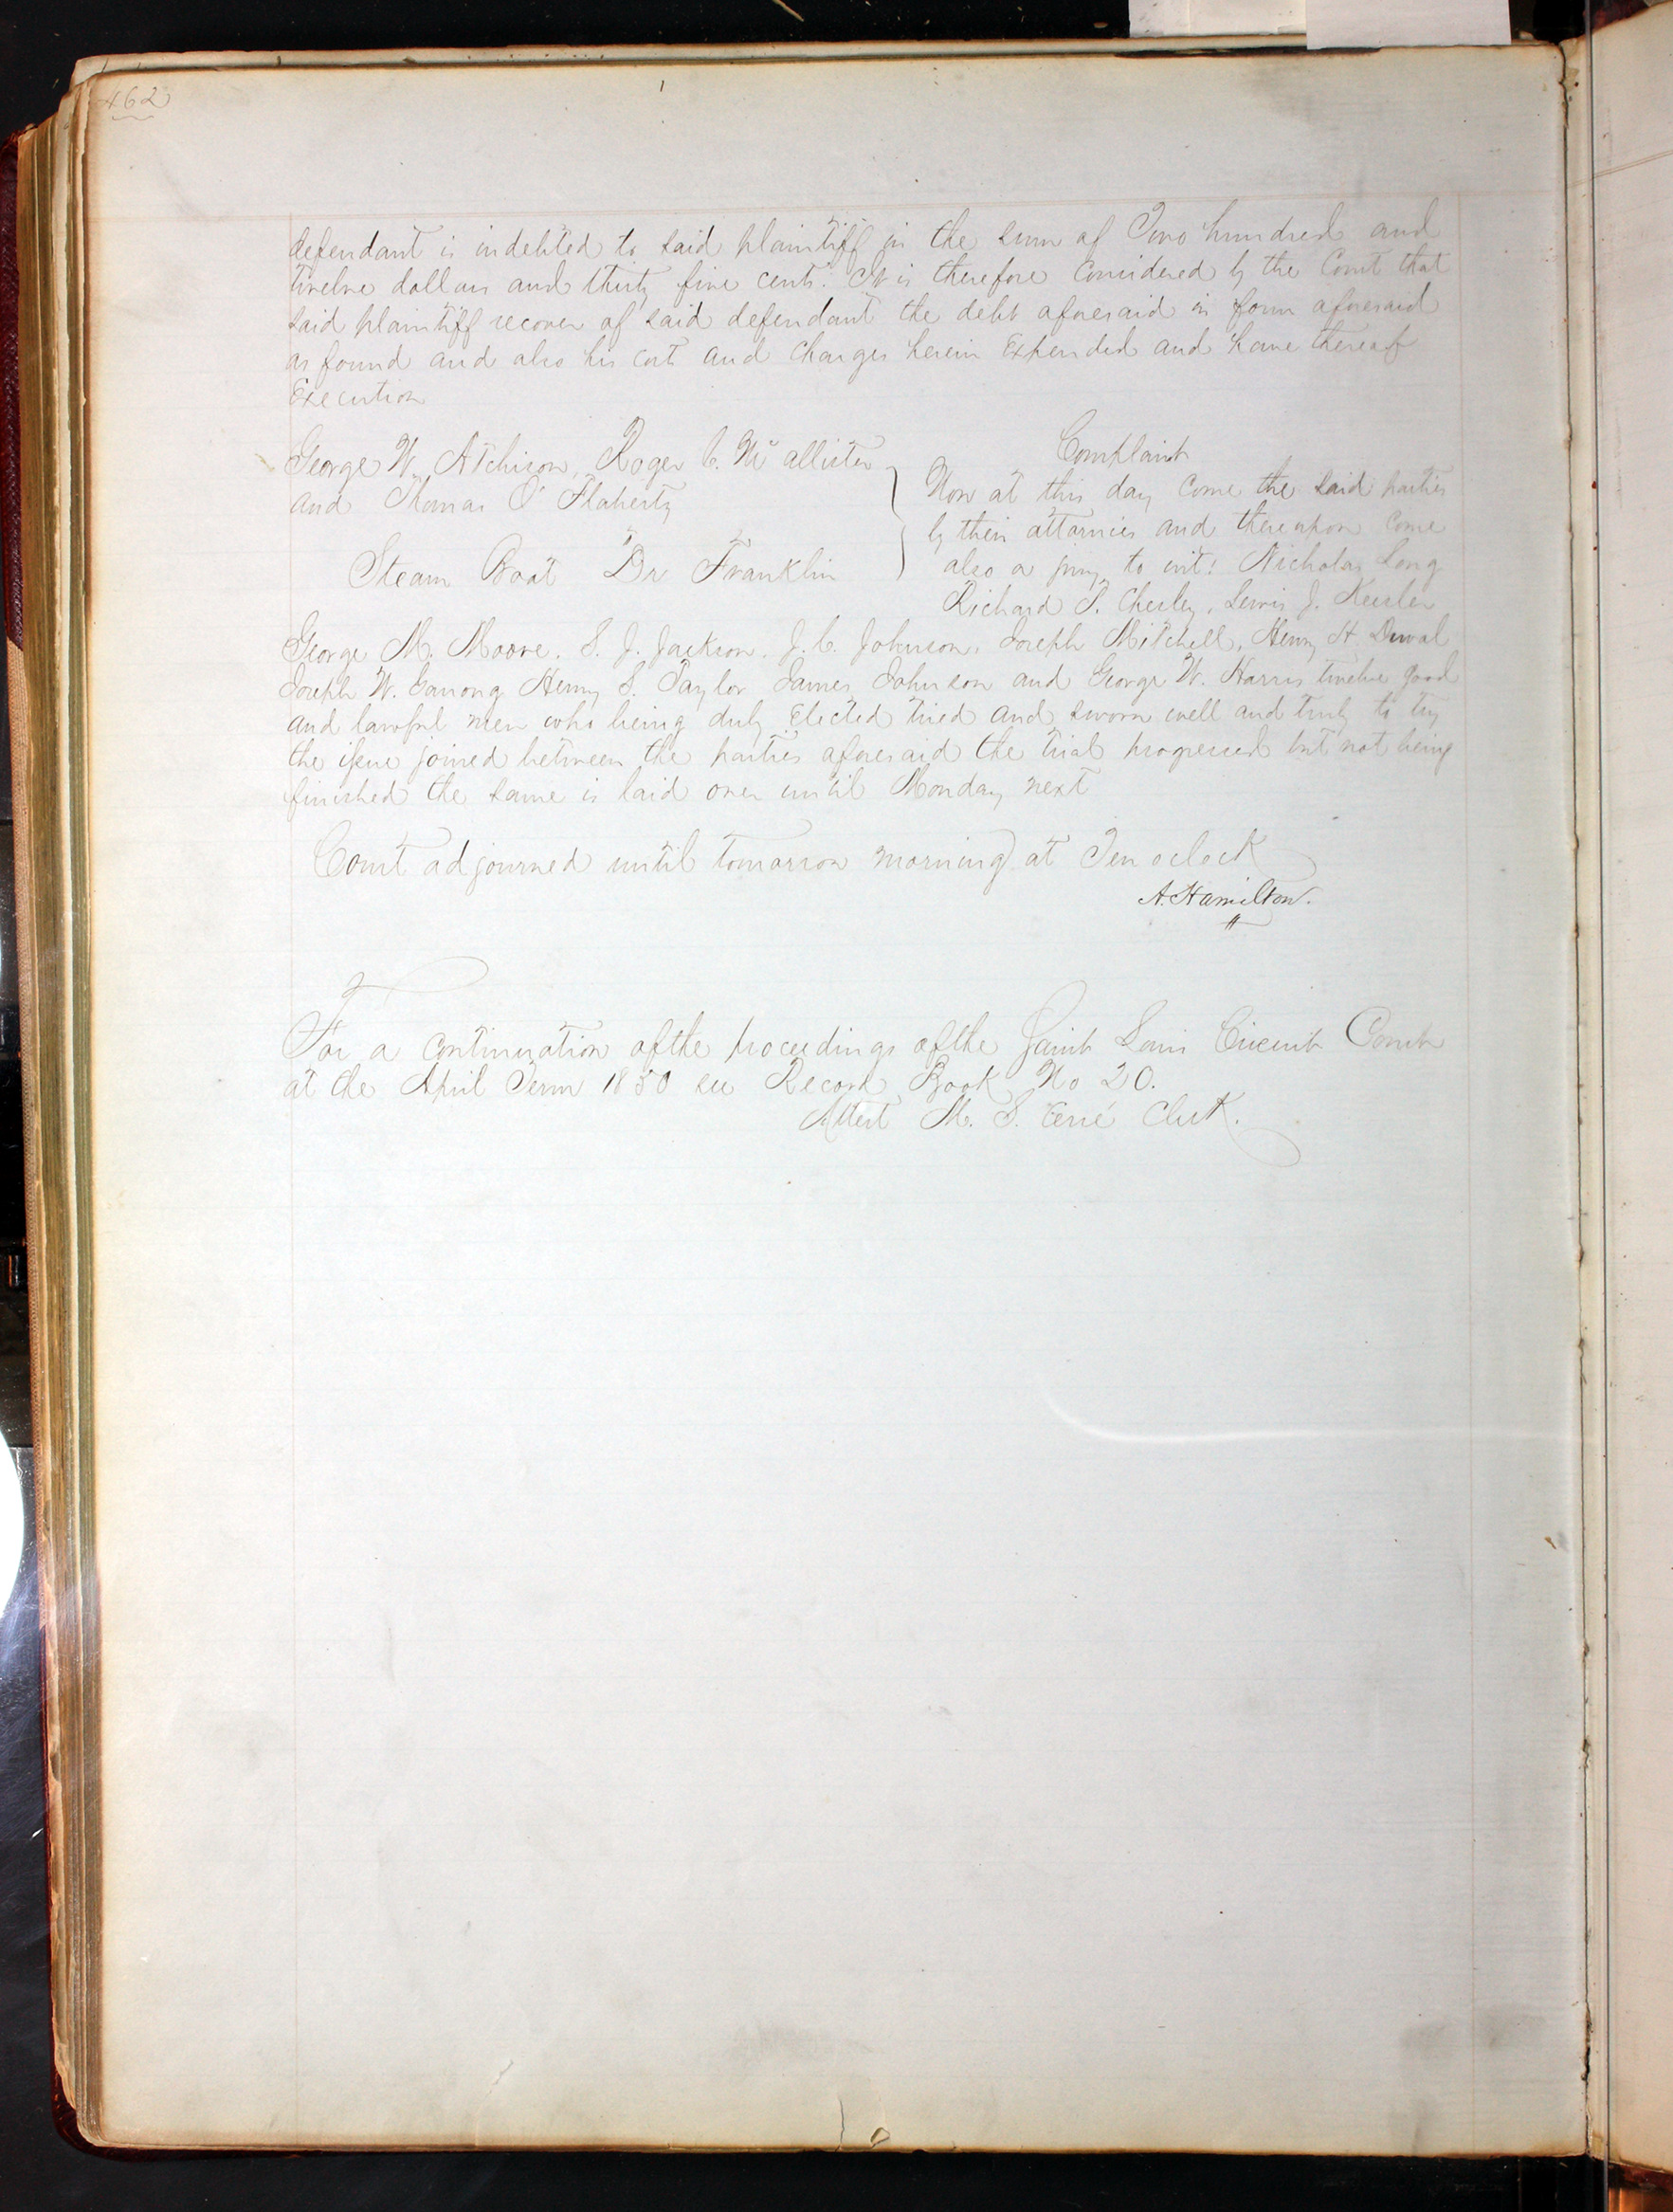 462
defendant is indebted to said plaintiff in the sum of Two hundred and
twelve dollars and thirty five cents. It is therefore Considered by the Court that
said plaintiff recover of said defendant the debt aforesaid in form aforesaid
as found and also his cost and Charges herein Expended and have thereof
Execution
George W. Atchison, Roger C. McAllister
and Thomas O'Flaherty
Steam Boat Dr Franklin
Complaint
Now at this day come the said parties
by their attornies and thereupon come
also a jury to wit: Nicholas Long
Richard T. Chesley, Lewis J. Keisler
George M. Moore. S. J. Jackson. J. C. Johnson, Joseph Mitchell, Henry H. Duval
Joseph W. Henry S. Taylor James Johnson and George W. Harris twelve good
and lawful men who being duly Elected tried and sworn well and truly to try
the issue joined between the parties aforesaid the trial progressed but not being
finished the same is laid over until Monday next
Court adjourned until tomorrow morning at Ten oclock
A. Hamilton.
For a continuation of the proceedings of the Saint Louis Circuit Court
at the April Term 1850 see Record Book No 20.
Attest M. S. Cerré Clerk.